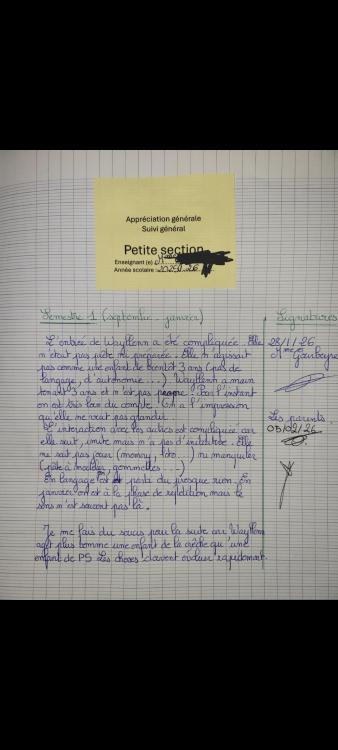 Appréciation générale
Suivi général
Petite section
Enseignant (e)
Année scolaire : 2025/26
Semestre 1 (septembre - janvier)
Signatures
L'entrée de Wayllenn a été compliquée. Elle
n'était pas prête ni préparée. Elle n'agissait
pas comme une enfant de bientôt 3 ans (pas de
langage, d'autonomie...). Wayllenn a main
tenant 3 ans et n'est pas propre. Pour l'instant
on est très loin du compte. On a l'impression
qu'elle ne veut pas grandir.
L'interaction avec les autres est compliquée car
elle suit, imite mais n'a pas d'initiative. Elle
ne sait pas jouer (memory, loto...) ni manipuler
(pâte à modeler, gommettes...)
En langage est parti du presque rien. En
janvier on est à la phase de répétition mais le
sens n'est souvent pas là.
Je me fais du soucis pour la suite car Wayllenn
agit plus comme une enfant de la crèche qu'une
enfant de PS. Les choses doivent évoluer rapidement.
28/1/26
Mme
Les parents
05/02/26